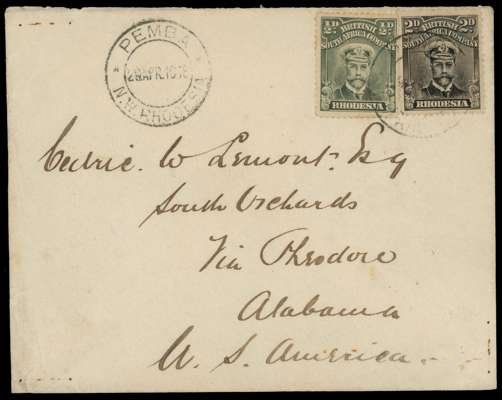 PEMBA
N.W. RHODESIA
½D ½D
BRITISH
SOUTH AFRICA COMPANY
RHODESIA
2D 2D
BRITISH
SOUTH AFRICA COMPANY
RHODESIA
Cedric. W Lemont. Esq
South Orchards
Via Theodore
Alabama
U. S. America.